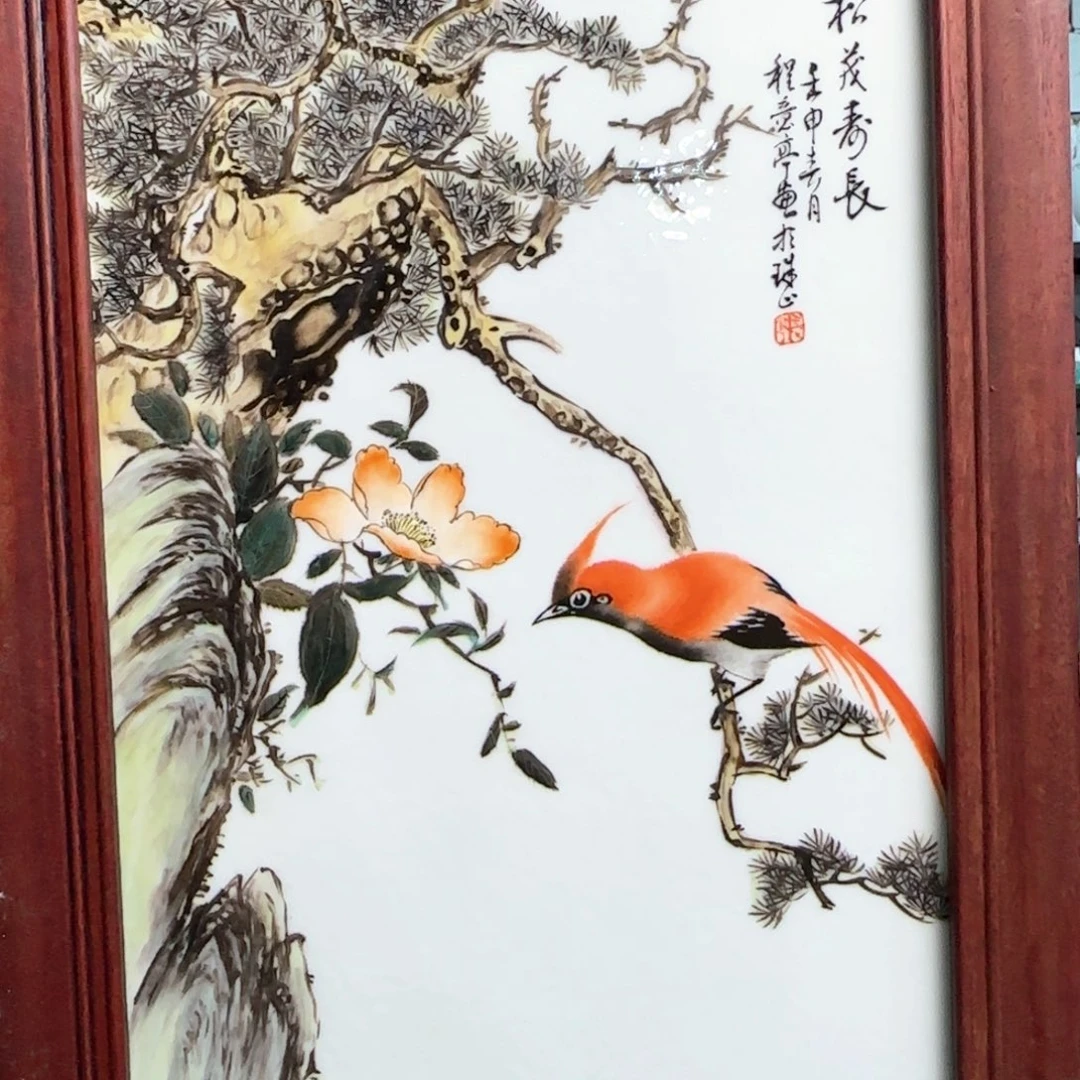 松茂寿長
壬申六月
程意亭畫於珠山